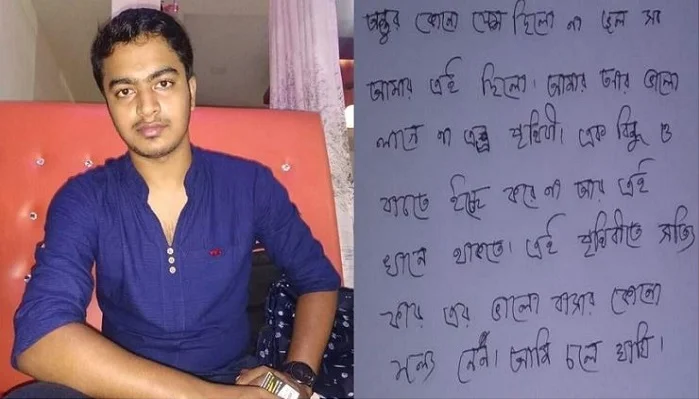 অন্তুর কোনো দোষ ছিলো না ছিল সব
আমার এই ছিলো। আমার আর ভালো
লাগে না এই পৃথিবী। এক বিন্দু ও
বাচতে ইচ্ছে করে না আর এই
খানে থাকতে। এই পৃথিবীতে সত্যি
কার এর ভালো বাসার কোনো
মূল্য নেই। আমি চলে যাবি।